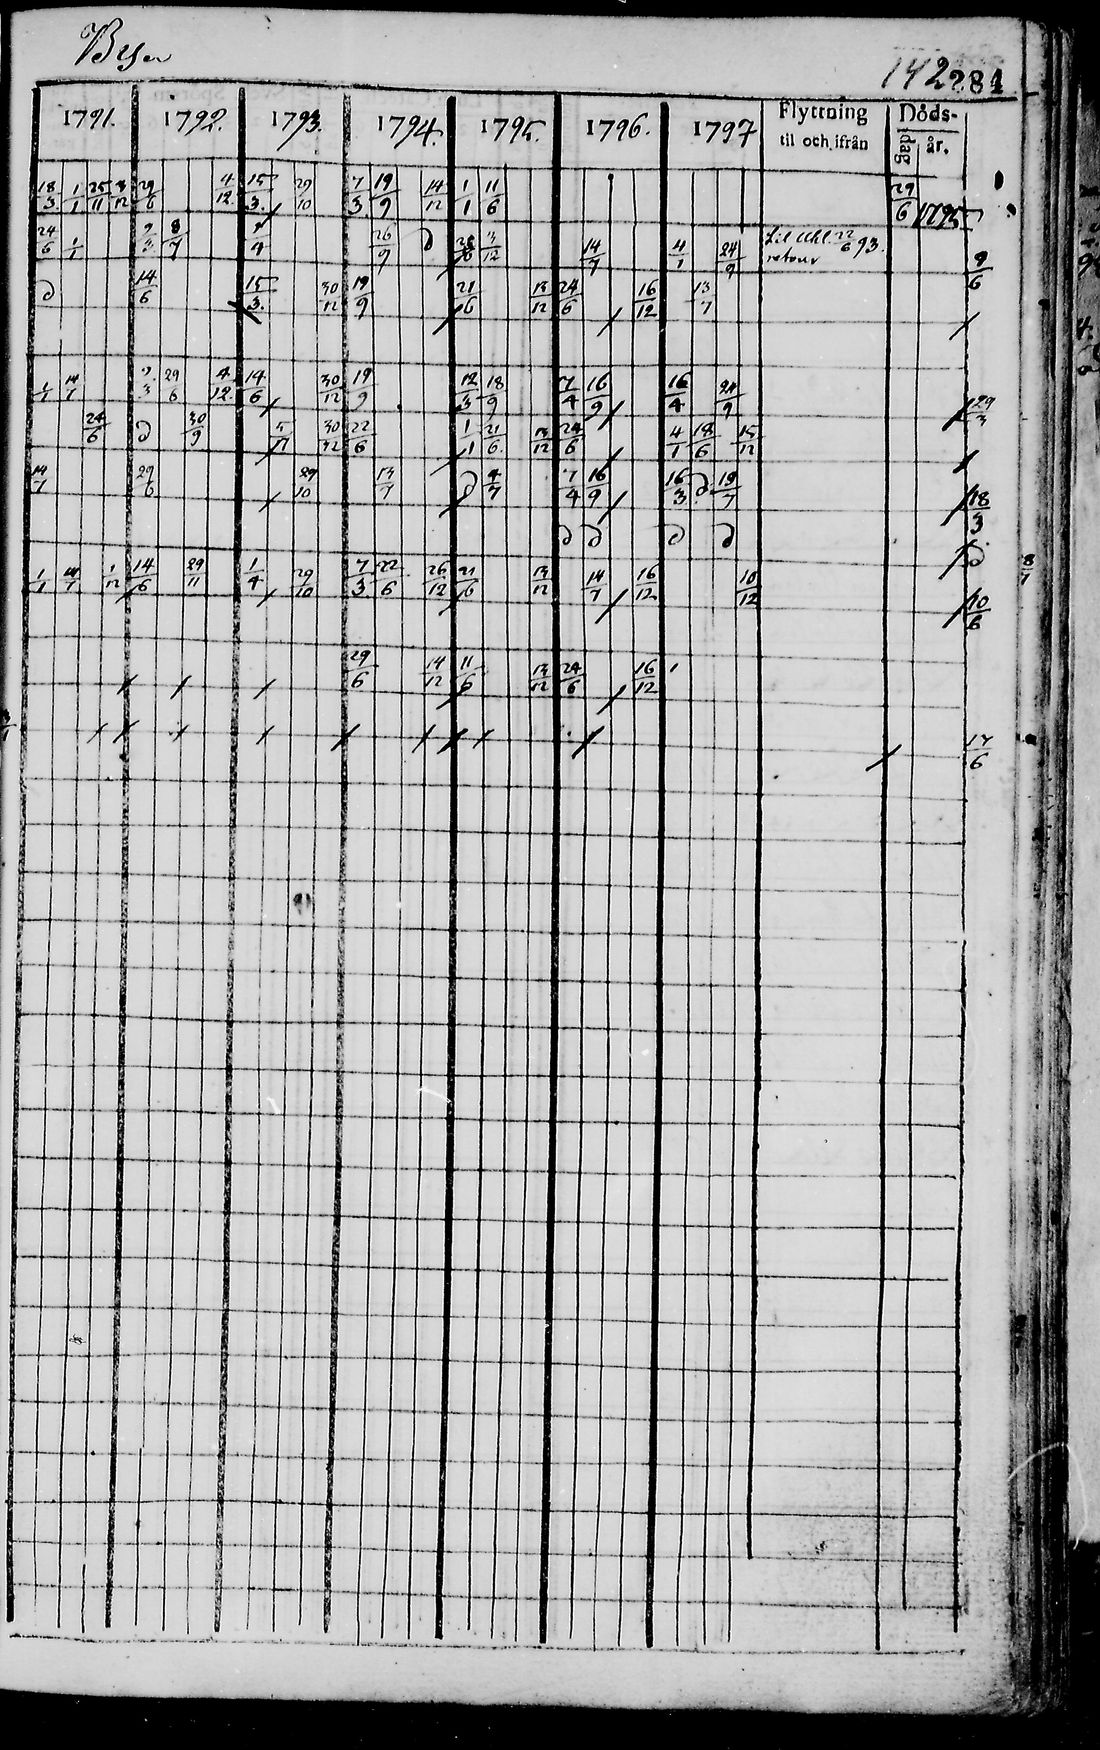 Byn
142 284
1791. 1792. 1793. 1794. 1795. 1796. 1797 Flyttning til och ifrån Döds- dag år.
18/3 1/1 25/11 3/12 29/6 4/12 15/3 29/10 7/3 19/9 14/12 1/1 11/6 29/6 1795
24/6 1/1 8/7 1/4 26/9 ∂ 3/12 14/7 4/1 24/9 til Uhl. 22/6 93. retour 9/6
∂ 14/6 15/3 30/12 19/9 21/6 13/12 24/6 16/12 13/7
1/1 14/7 2/3 29/6 4/12 14/6 30/12 19/9 12/3 18/9 7/4 16/9 16/4 24/9 29/3
24/6 ∂ 30/9 30/12 22/6 1/1 21/6 13/12 24/6 4/1 18/6 15/12
14/7 29/6 29/10 13/7 ∂ 4/7 7/4 16/9 16/3 ∂ 19/7 18/3
∂ ∂ ∂ ∂ ∂
1/1 14/7 1/12 14/6 29/11 1/4 29/10 7/3 22/6 26/12 21/6 13/12 14/7 16/12 10/12 10/6
29/6 14/12 11/6 13/12 24/6 16/12
17/6
8/7